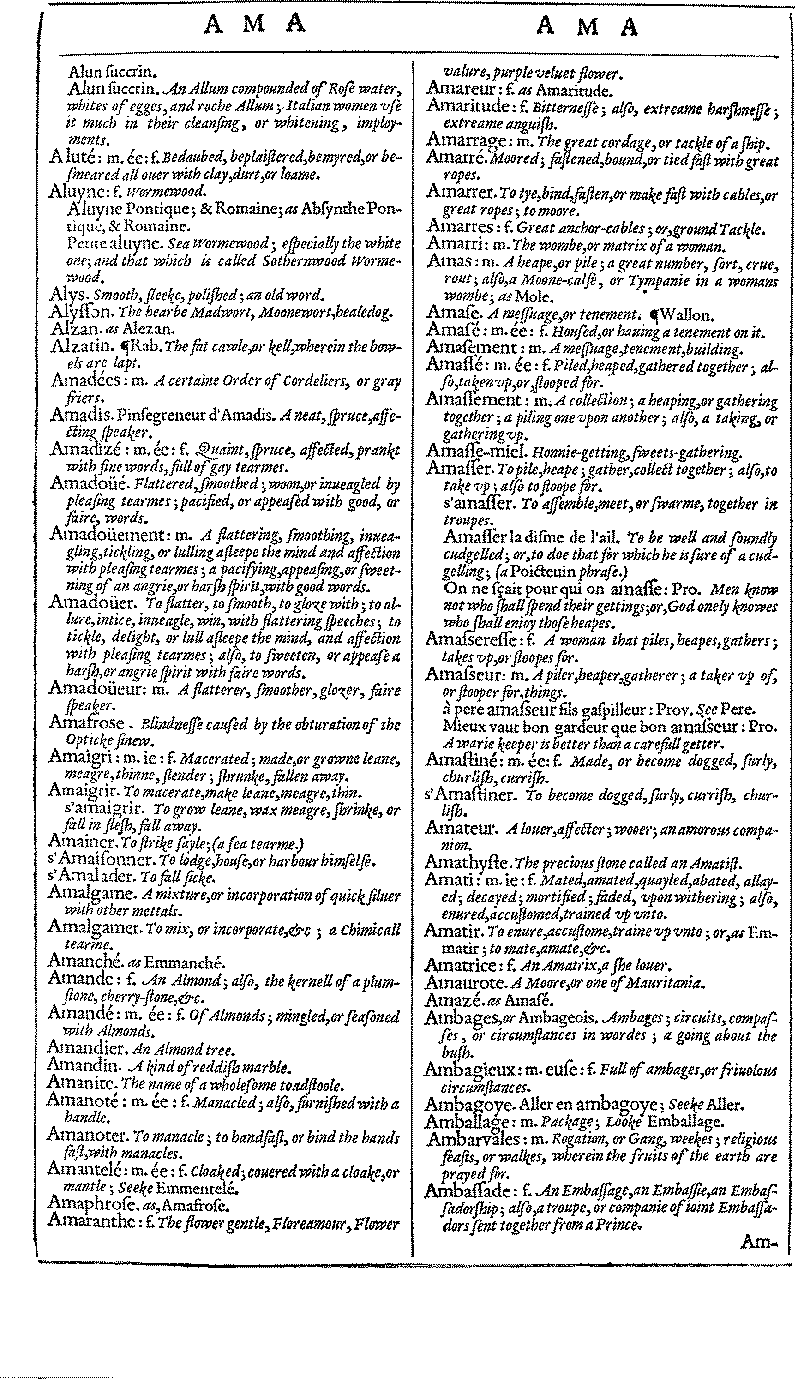 A M A
A M A
Alun ſuccrin.
Alun ſuccrin. An Allum compounded of Roſe water,
whites of egges, and roche Allum; Italian women vſe
it much in their cleanſing, or whitening, imploy-
ments.
Aluté: m. ée: f. Bedaubed, beplaiſtered, bemyred, or be-
ſmeared all ouer with clay, durt, or loame.
Aluyne: f. Wormewood.
Aluyne Pontique; & Romaine; as Abſynthe Pon-
tique, & Romaine.
Petite aluyne. Sea Wormewood; eſpecially the white
one; and that which is called Sothernwood Worme-
wood.
Alys. Smooth, ſleeke, poliſhed; an old word.
Alyſſon. The hearbe Madwort, Moonewort, healedog.
Alzan. as Alezan.
Alzatin. ¶Rab. The fat cawle, or kell, wherein the bow-
els are lapt.
Amadées: m. A certaine Order of Cordeliers, or gray
friers.
Amadis. Pinſegreneur d'Amadis. A neat, ſpruce, affe-
cting ſpeaker.
Amadizé: m. ée: f. Quaint, ſpruce, affected, prankt
with fine words, full of gay tearmes.
Amadoüé. Flattered, ſmoothed; woon, or inueagled by
pleaſing tearmes; pacified, or appeaſed with good, or
faire, words.
Amadoüement: m. A flattering, ſmoothing, inuea-
gling, tickling, or lulling aſleepe the mind and affection
with pleaſing tearmes; a pacifying, appeaſing, or ſweet-
ning of an angrie, or harſh ſpirit, with good words.
Amadoüer. To flatter, to ſmooth, to gloze with; to al-
lure, intice, inueagle, win, with flattering ſpeeches; to
tickle, delight, or lull aſleepe the mind, and affection
with pleaſing tearmes; alſo, to ſweeten, or appeaſe a
harſh, or angrie ſpirit with faire words.
Amadoüeur: m. A flatterer, ſmoother, glozer, faire
ſpeaker.
Amafroſe. Blindneſſe cauſed by the obturation of the
Opticke ſinew.
Amaigri: m. ie: f. Macerated; made, or growne leane,
meagre, thinne, ſlender; ſhrunke, fallen away.
Amaigrir. To macerate, make leane, meagre, thin.
s'amaigrir. To grow leane, wax meagre, ſhrinke, or
fall in fleſh, fall away.
Amainer. To ſtrike ſayle; (a ſea tearme.)
s'Amaiſonner. To lodge, houſe, or harbour himſelfe.
s'Amalader. To fall ſicke.
Amalgame. A mixture, or incorporation of quickſiluer
with other mettals.
Amalgamer. To mix, or incorporate, &c; a Chimicall
tearme.
Amanché. as Emmanché.
Amande: f. An Almond; alſo, the kernell of a plum-
ſtone, cherry-ſtone, &c.
Amandé: m. ée: f. Of Almonds; mingled, or ſeaſoned
with Almonds.
Amandier. An Almond tree.
Amandin. A kind of reddiſh marble.
Amanite. The name of a wholeſome toadſtoole.
Amanoté: m. ée: f. Manacled; alſo, furniſhed with a
handle.
Amanoter. To manacle; to handfaſt, or bind the hands
faſt, with manacles.
Amantelé: m. ée: f. Cloaked; couered with a cloake, or
mantle; Seeke Emmentelé.
Amaphroſe. as, Amafroſe.
Amaranthe: f. The flower gentle, Floreamour, Flower
valure, purple veluet flower.
Amareur: f. as Amaritude.
Amaritude: f. Bitterneſſe; alſo, extreame harſhneſſe;
extreame anguiſh.
Amarrage: m. The great cordage, or tackle of a ſhip.
Amarré. Moored; faſtened, bound, or tied faſt with great
ropes.
Amarrer. To tye, bind, faſten, or make faſt with cables, or
great ropes; to moore.
Amarres: f. Great anchor-cables; or, ground Tackle.
Amarri: m. The wombe, or matrix of a woman.
Amas: m. A heape, or pile; a great number, ſort, crue,
rout; alſo, a Moone-calfe, or Tympanie in a womans
wombe; as Mole.
Amaſe. A meſſuage, or tenement. ¶Wallon.
Amaſé: m. ée: f. Houſed, or hauing a tenement on it.
Amaſement: m. A meſſuage, tenement, building.
Amaſſé: m. ée: f. Piled, heaped, gathered together; al-
ſo, taken vp, or, ſtooped for.
Amaſſement: m. A collection; a heaping, or gathering
together; a piling one vpon another; alſo, a taking, or
gathering vp.
Amaſſe-miel. Honnie-getting, ſweets-gathering.
Amaſſer. To pile, heape; gather, collect together; alſo, to
take vp; alſo to ſtoope for.
s'amaſſer. To aſſemble, meet, or ſwarme, together in
troupes.
Amaſſer la diſme de l'ail. To be well and ſoundly
cudgelled; or, to doe that for which he is ſure of a cud-
gelling; (a Poicteuin phraſe.)
On ne ſçait pour qui on amaſſe: Pro. Men know
not who ſhall ſpend their gettings; or, God onely knowes
who ſhall enioy thoſe heapes.
Amaſſereſſe: f. A woman that piles, heapes, gathers;
takes vp, or ſtoopes for.
Amaſſeur: m. A piler, heaper, gatherer; a taker vp of,
or ſtooper for, things.
à pere amaſſeur fils gaſpilleur: Prov. See Pere.
Mieux vaut bon gardeur que bon amaſſeur: Pro.
A warie keeper is better than a carefull getter.
Amaſtiné: m. ée: f. Made, or become dogged, ſurly,
churliſh, curriſh.
s'Amaſtiner. To become dogged, ſurly, curriſh, chur-
liſh.
Amateur. A louer, affecter; wooer; an amorous compa-
nion.
Amathyſte. The precious ſtone called an Amatiſt.
Amati: m. ie: f. Mated, amated, quayled, abated, allay-
ed; decayed; mortified; faded, vpon withering; alſo,
enured, accuſtomed, trained vp vnto.
Amatir. To enure, accuſtome, traine vp vnto; or, as Em-
matir; to mate, amate, &c.
Amatrice: f. An Amatrix, a ſhe louer.
Amaurote. A Moore, or one of Mauritania.
Amazé. as Amaſé.
Ambages, or Ambageois. Ambages; circuits, compaſ-
ſes, or circumſtances in wordes; a going about the
buſh.
Ambagieux: m. euſe: f. Full of ambages, or friuolous
circumſtances.
Ambagoye. Aller en ambagoye; Seeke Aller.
Amballage: m. Package; Looke Emballage.
Ambarvales: m. Rogation, or Gang, weekes; religious
feaſts, or walkes, wherein the fruits of the earth are
prayed for.
Ambaſſade: f. An Embaſſage, an Embaſſie, an Embaſ-
ſadorſhip; alſo, a troupe, or companie of ioint Embaſſa-
dors ſent together from a Prince.
Am-